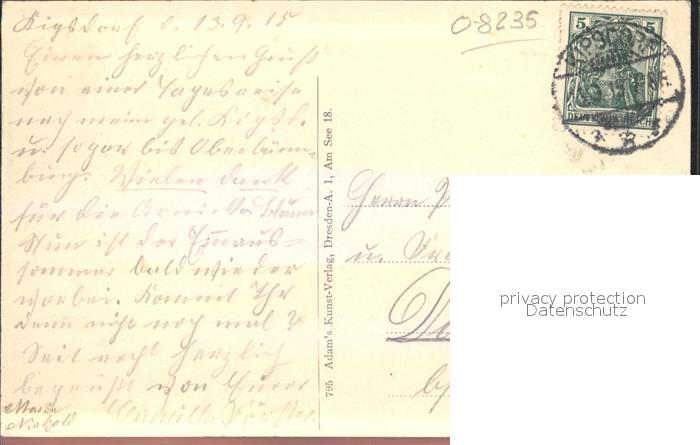 Kipsdorf d. 13.9.15
Einen herzlichen Gruß
von einer Tagesreise
nach meim gel. Kipsd.
u. sogar bis Oberbären-
burg. Vielen Dank
für die Arnika Blumen
Nun ist der
sommer bald wieder
vorbei. Kommt Ihr
denn nicht noch mal?
Seit recht herzlich
begrüßt von Eurer
Maria
O-8235
5 5
DEUTSCHES REICH
KIPSDORF
795 Adam's Kunst-Verlag, Dresden-A. 1, Am See 18.
Herrn
u.
privacy protection
Datenschutz